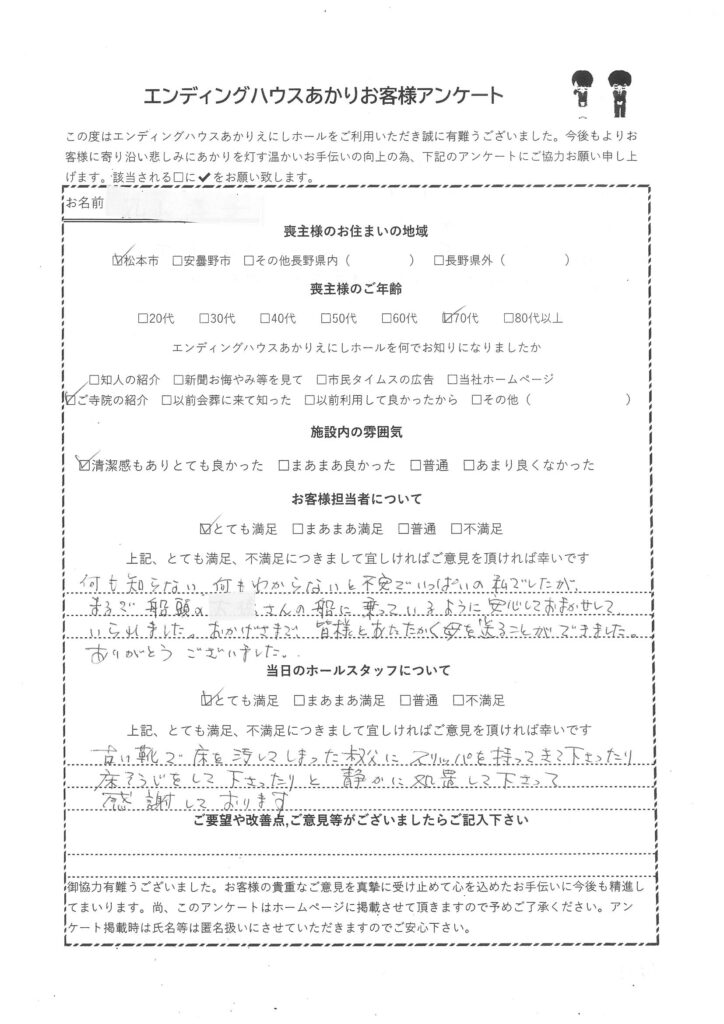 エンディングハウスあかりお客様アンケート
この度はエンディングハウスあかりえにしホールをご利用いただき誠に有難うございました。今後もよりお
客様に寄り沿い悲しみにあかりを灯す温かいお手伝いの向上の為、下記のアンケートにご協力お願い申し上
げます。該当される□に✔をお願い致します。
お名前
喪主様のお住まいの地域
☑松本市 □安曇野市 □その他長野県内（ ） □長野県外（ ）
喪主様のご年齢
□20代 □30代 □40代 □50代 □60代 ☑70代 □80代以上
エンディングハウスあかりえにしホールを何でお知りになりましたか
□知人の紹介 □新聞お悔やみ等を見て □市民タイムスの広告 □当社ホームページ
☑ご寺院の紹介 □以前会葬に来て知った □以前利用して良かったから □その他（ ）
施設内の雰囲気
☑清潔感もありとても良かった □まあまあ良かった □普通 □あまり良くなかった
お客様担当者について
☑とても満足 □まあまあ満足 □普通 □不満足
上記、とても満足、不満足につきまして宜しければご意見を頂ければ幸いです
何も知らない、何もわからないと不安でいっぱいの私でしたが、
まるで船頭の さんの船に乗っているように安心しておまかせして
いられました。おかげさまで、皆様とあたたかく母を送ることができました。
ありがとうございました。
当日のホールスタッフについて
☑とても満足 □まあまあ満足 □普通 □不満足
上記、とても満足、不満足につきまして宜しければご意見を頂ければ幸いです
古い靴で床を汚してしまった叔父にスリッパを持ってきて下さったり
床そうじをして下さったりと静かに処置して下さって
感謝しております
ご要望や改善点,ご意見等がございましたらご記入下さい
御協力有難うございました。お客様の貴重なご意見を真摯に受け止めて心を込めたお手伝いに今後も精進し
てまいります。尚、このアンケートはホームページに掲載させて頂きますので予めご了承ください。アン
ケート掲載時は氏名等は匿名扱いにさせていただきますのでご安心下さい。